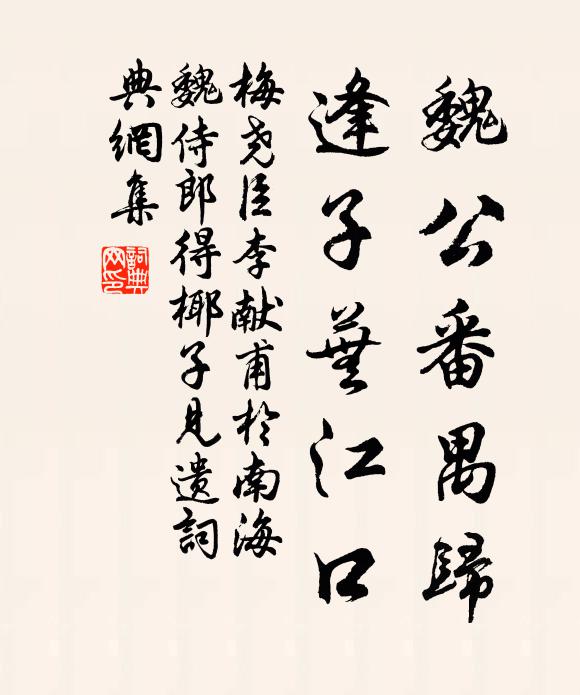 魏公番禺歸
逢子蕪江口
梅尧臣李献甫於南海
魏侍郎得椰子見遺詞
典網集
詞典網印